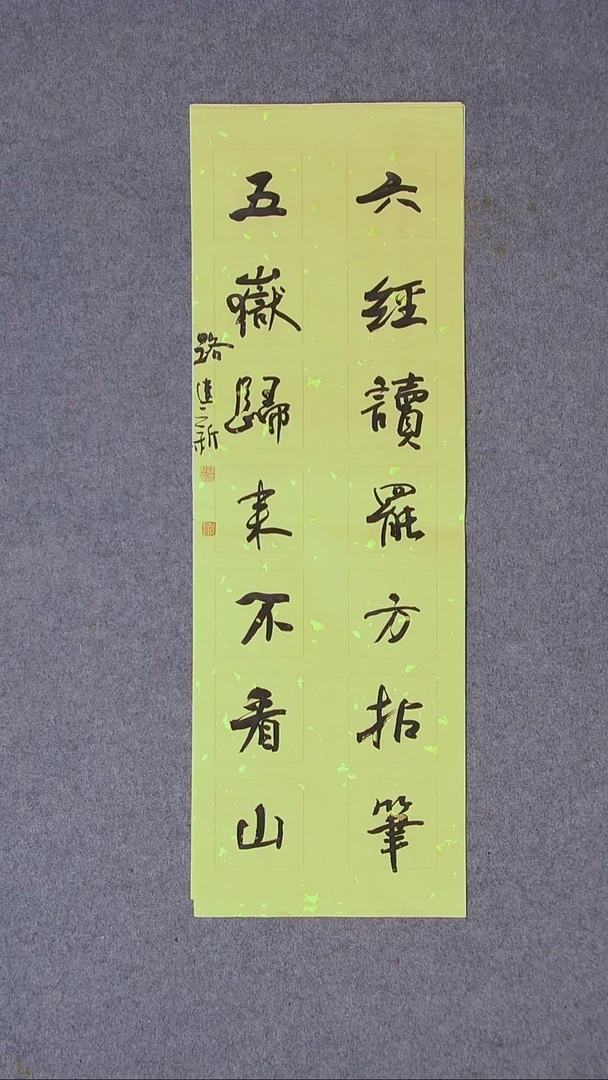 六經讀罷方拈筆
五嶽歸来不看山
路建新